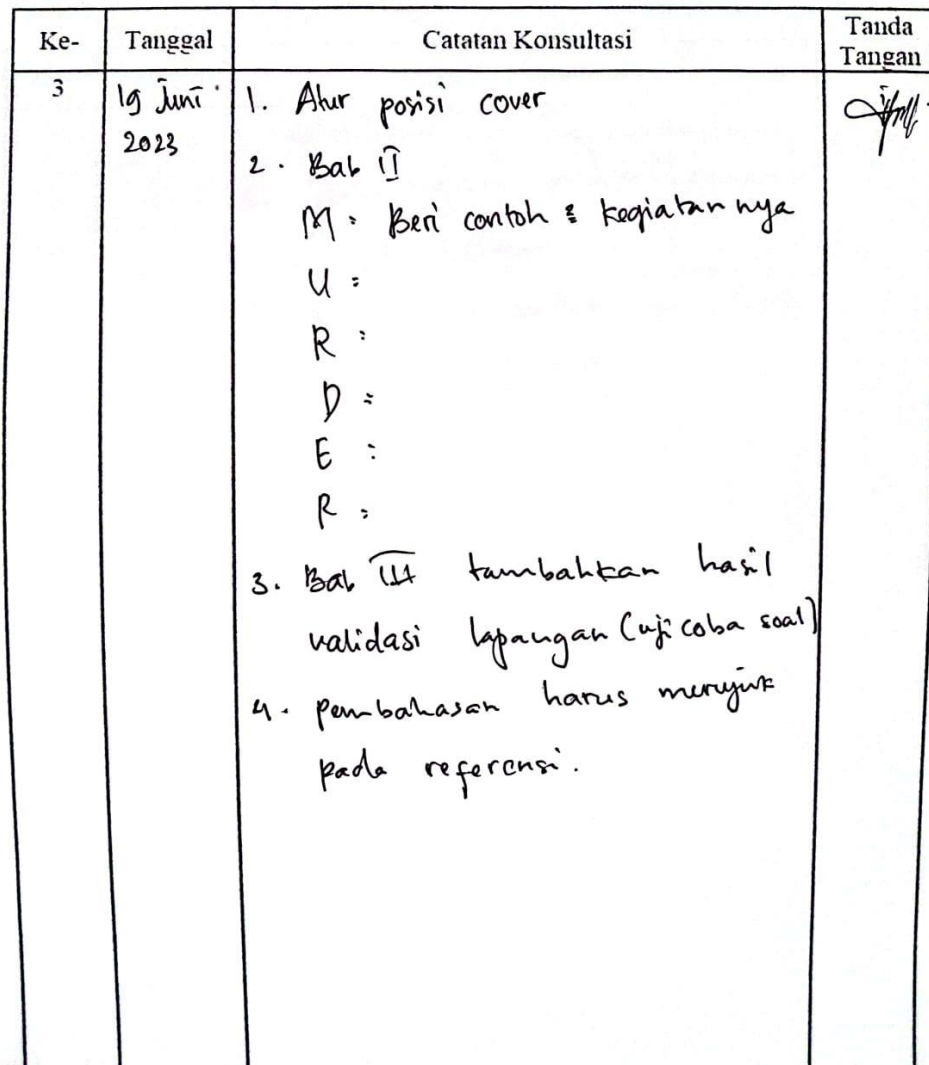 Ke- Tanggal Catatan Konsultasi Tanda Tangan
3 19 Juni 2023
1. Atur posisi cover
2. Bab II
M : Beri contoh & kegiatannya
U :
R :
D :
E :
R :
3. Bab III tambahkan hasil
validasi lapangan (uji coba soal)
4. pembahasan harus merujuk
pada referensi.